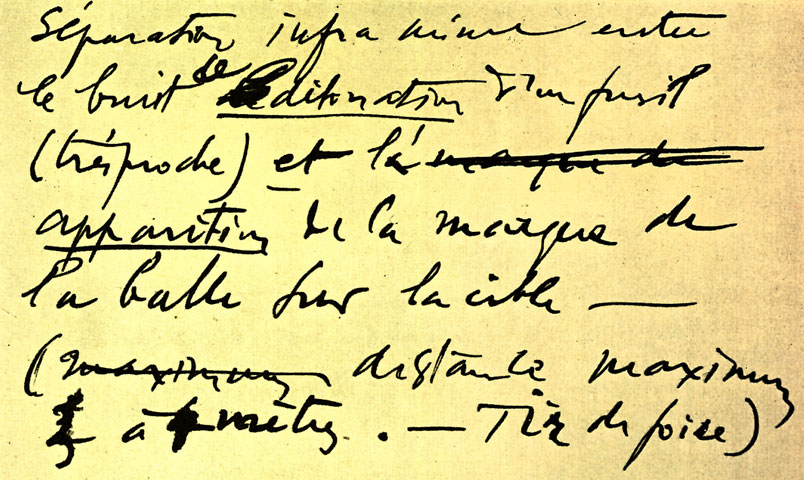 Séparation infra mince entre
le bruit de détonation d'un fusil
(très proche) et l'a marque de
apparition de la marque de
la balle sur la cible —
(maximum distance maximum
3 à 4 mètres. — Tir de foire)